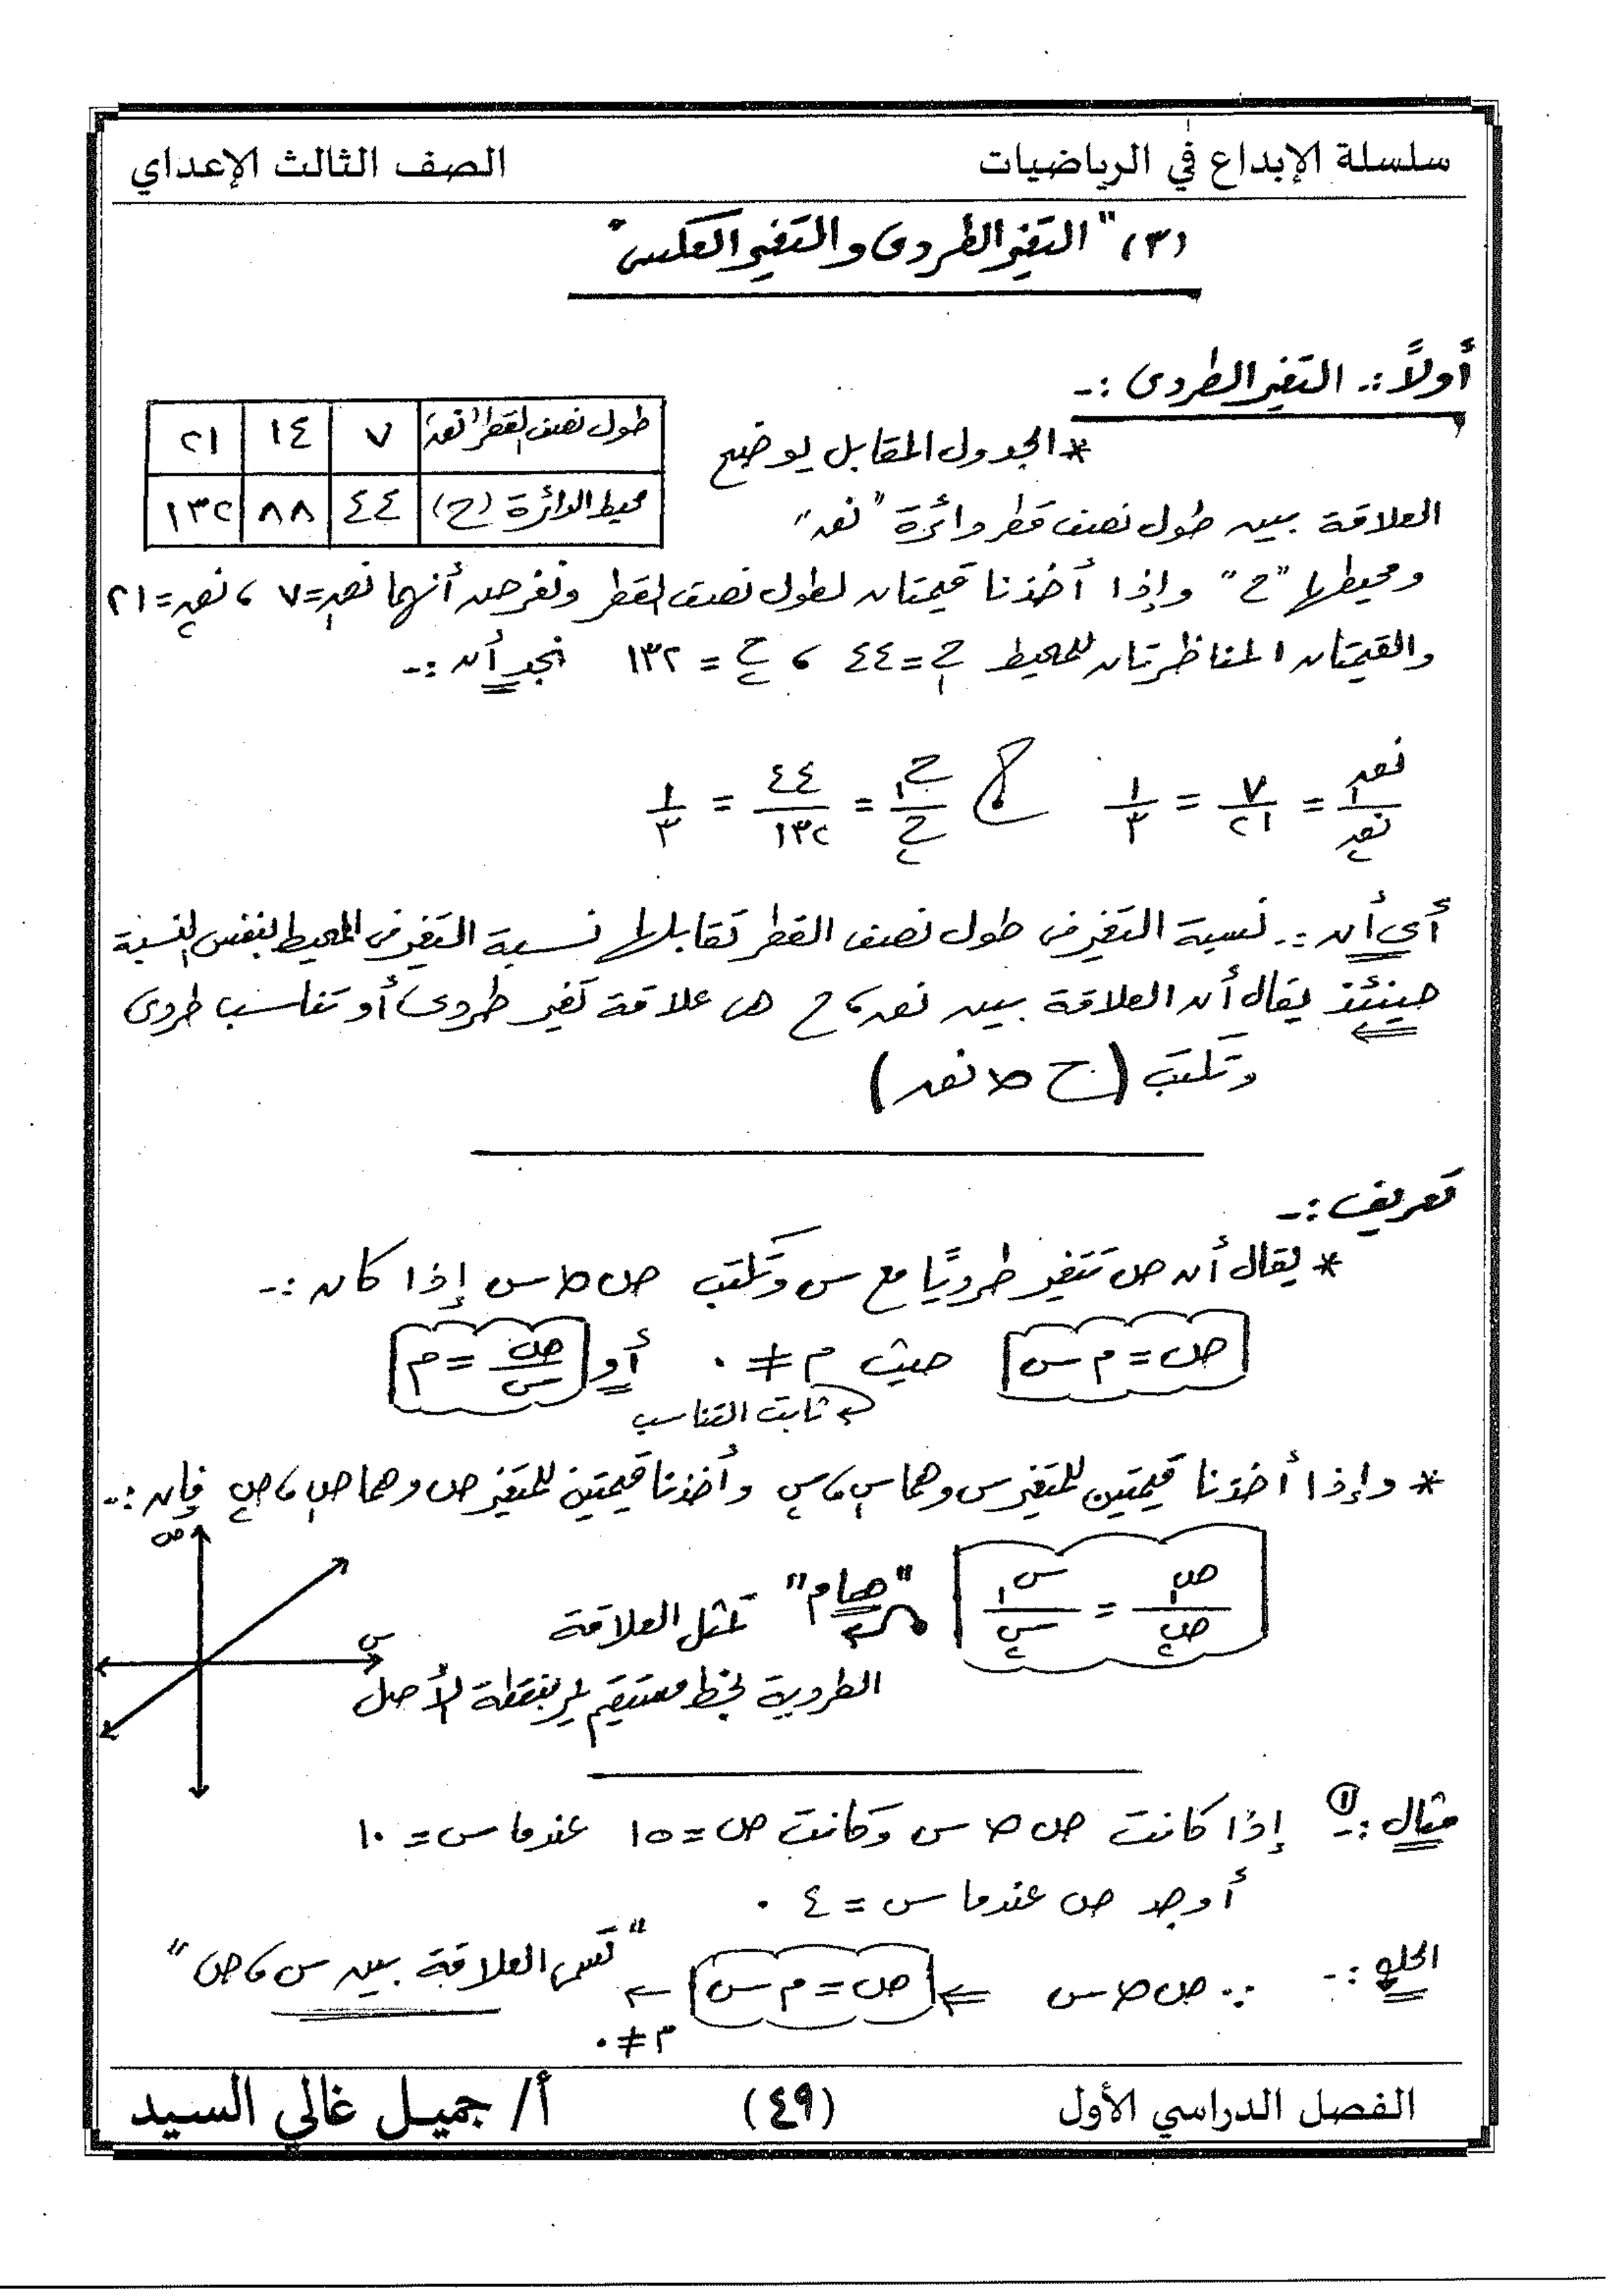 سلسلة الإبداع في الرياضيات
الصف الثالث الإعداي
(٣) "التغير الطردى والتغير العكسى"
أولاً :- التغير الطردى :-
* الجدول المقابل يوضح
طول نصف القطر "نعم" | ٧ | ١٤ | ٢١
محيط الدائرة (ح) | ٤٤ | ٨٨ | ١٣٢
العلاقة بين طول نصف قطر دائرة "نق"
ومحيطها "ح" وإذا أخذنا قيمتان لطول نصف القطر ونفرض أنهما نق١=٧ ، نق٢=٢١
والقيمتان المناظرتان للمحيط ح١=٤٤ ، ح٢=١٣٢ نجد أن :-
نق١/نق٢ = ٧/٢١ = ١/٣ ، ح١/ح٢ = ٤٤/١٣٢ = ١/٣
أي أن :- نسبة التغير فى طول نصف القطر تقابلها نسبة التغير فى المحيط بنفس النسبة
حينئذ يقال أن العلاقة بين نق ، ح هى علاقة تغير طردى أو تناسب طردى
وتكتب (ح ∝ نق)
تعريف :-
* يقال أن ص تتغير طرديًا مع س وتكتب ص ∝ س إذا كان :-
ص = م س حيث م ≠ ٠ أو ص/س = م
ثابت التناسب
* وإذا أخذنا قيمتين للمتغير س وهما س١ ، س٢ وأخذنا قيمتين للمتغير ص وهما ص١ ، ص٢ فإن :-
ص١/ص٢ = س١/س٢
"هام" تمثل العلاقة
الطردية بخط مستقيم يمر بنقطة الأصل
ص
س
مثال ① :- إذا كانت ص ∝ س وكانت ص = ١٥ عندما س = ١٠
أوجد ص عندما س = ٤ .
الحل :- ∵ ص ∝ س ⇐ ص = م س ← "تسمى العلاقة بين س ، ص"
م ≠ ٠
الفصل الدراسي الأول
(٤٩)
أ/ جميل غالي السيد